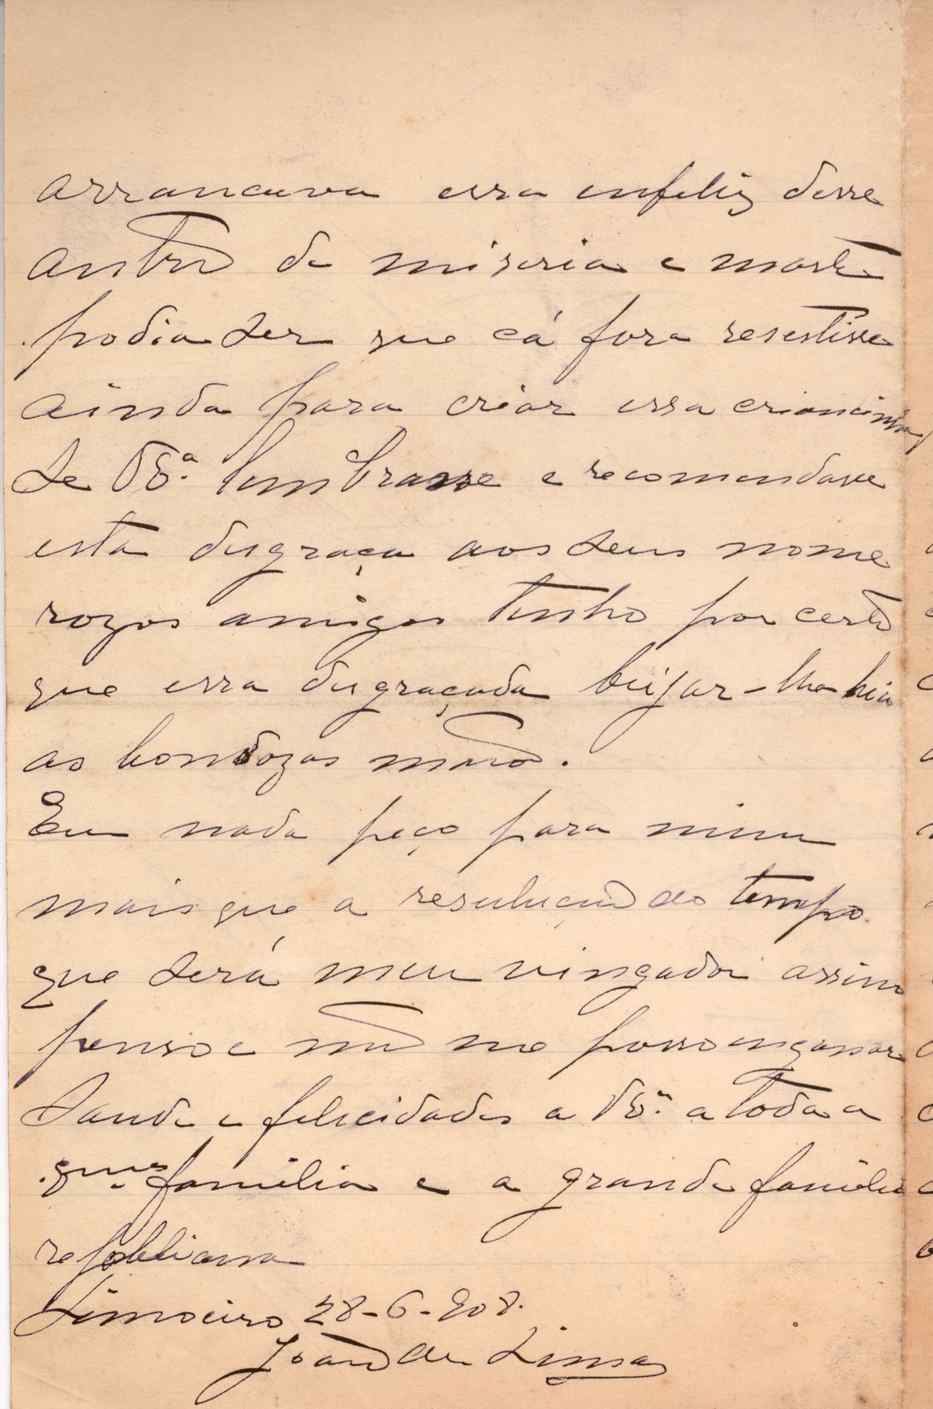 arrancava essa enfeliz desse
antro de miseria e morte
podia ser que cá fora resestisse
ainda para criar essa criancinha,
Se VSª. lembrasse e recomendasse
esta disgraça aos seus nome
rozos amigos tenho por certo
que essa disgraçada beijar-lhe hia
as bondozas mãos.
Eu nada peço para mim
mais que a resulução do tempo
que será meu vingador assim
penso e não me posso enganar
Saude e felicidades a VSª. a toda a
familia e a grande familia
republicana
Limoeiro 28-6-908.
João de Lima